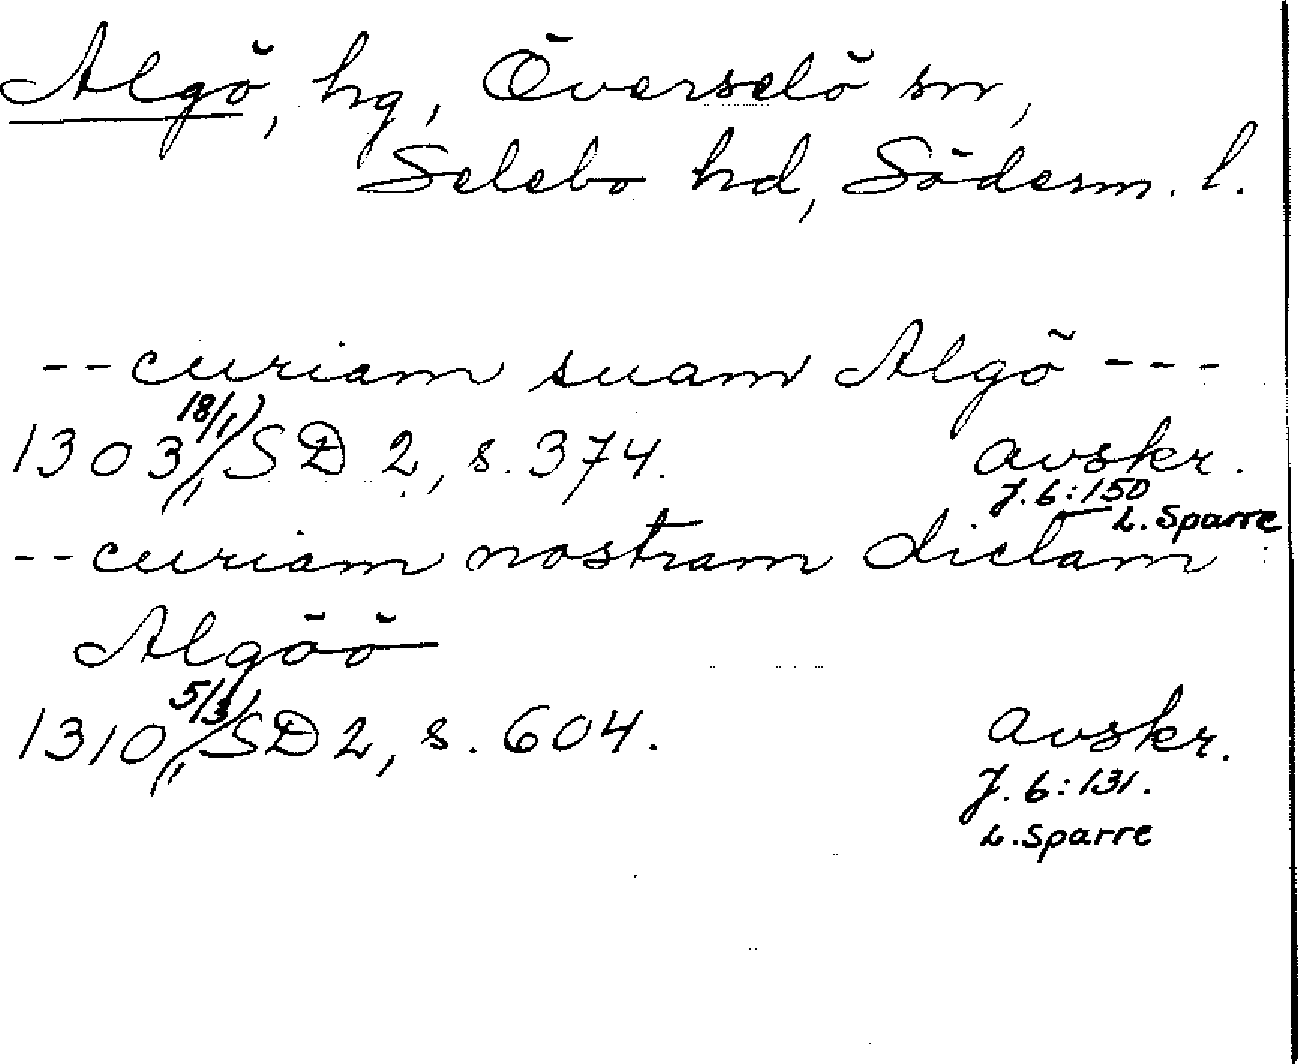 Algö, hg, Överselö sn,
Selebo hd, Söderm. l.
--curiam suam Algö ---
1303 18/1, SD 2, s. 374. avskr.
J. 6:150
L. Sparre
--curiam nostram dictam
Algöö
1310 5/3, SD 2, s. 604. avskr.
J. 6:131.
L. Sparre